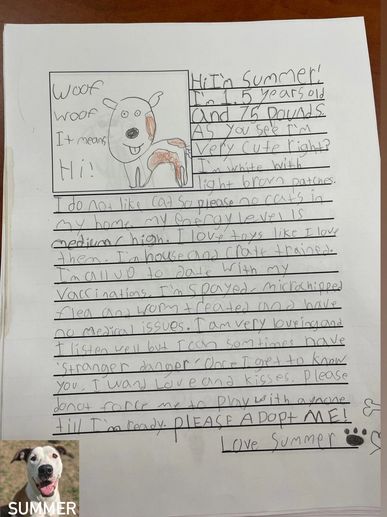 Woof
woof
It means
Hi!
Hi I'm Summer!
I'm 1.5 years old
and 75 pounds.
As you see I'm
very cute right?
I'm white with
light brown patches.
I do not like cat so please no cats in
my home. my energy level is
medium/high. I love toys like I love
them. I'm house and crate trained.
I'm all up to date with my
vaccinations. I'm spayed, microchipped
flea and worm treated and have
no medical issues. I am very loveing and
I listen well but I can somtimes have
"stranger danger" Once I get to know
you, I want Love and kisses. Please
do not force me to play with anyone
till I'm ready. PLEASE ADOPT ME!
Love Summer
SUMMER